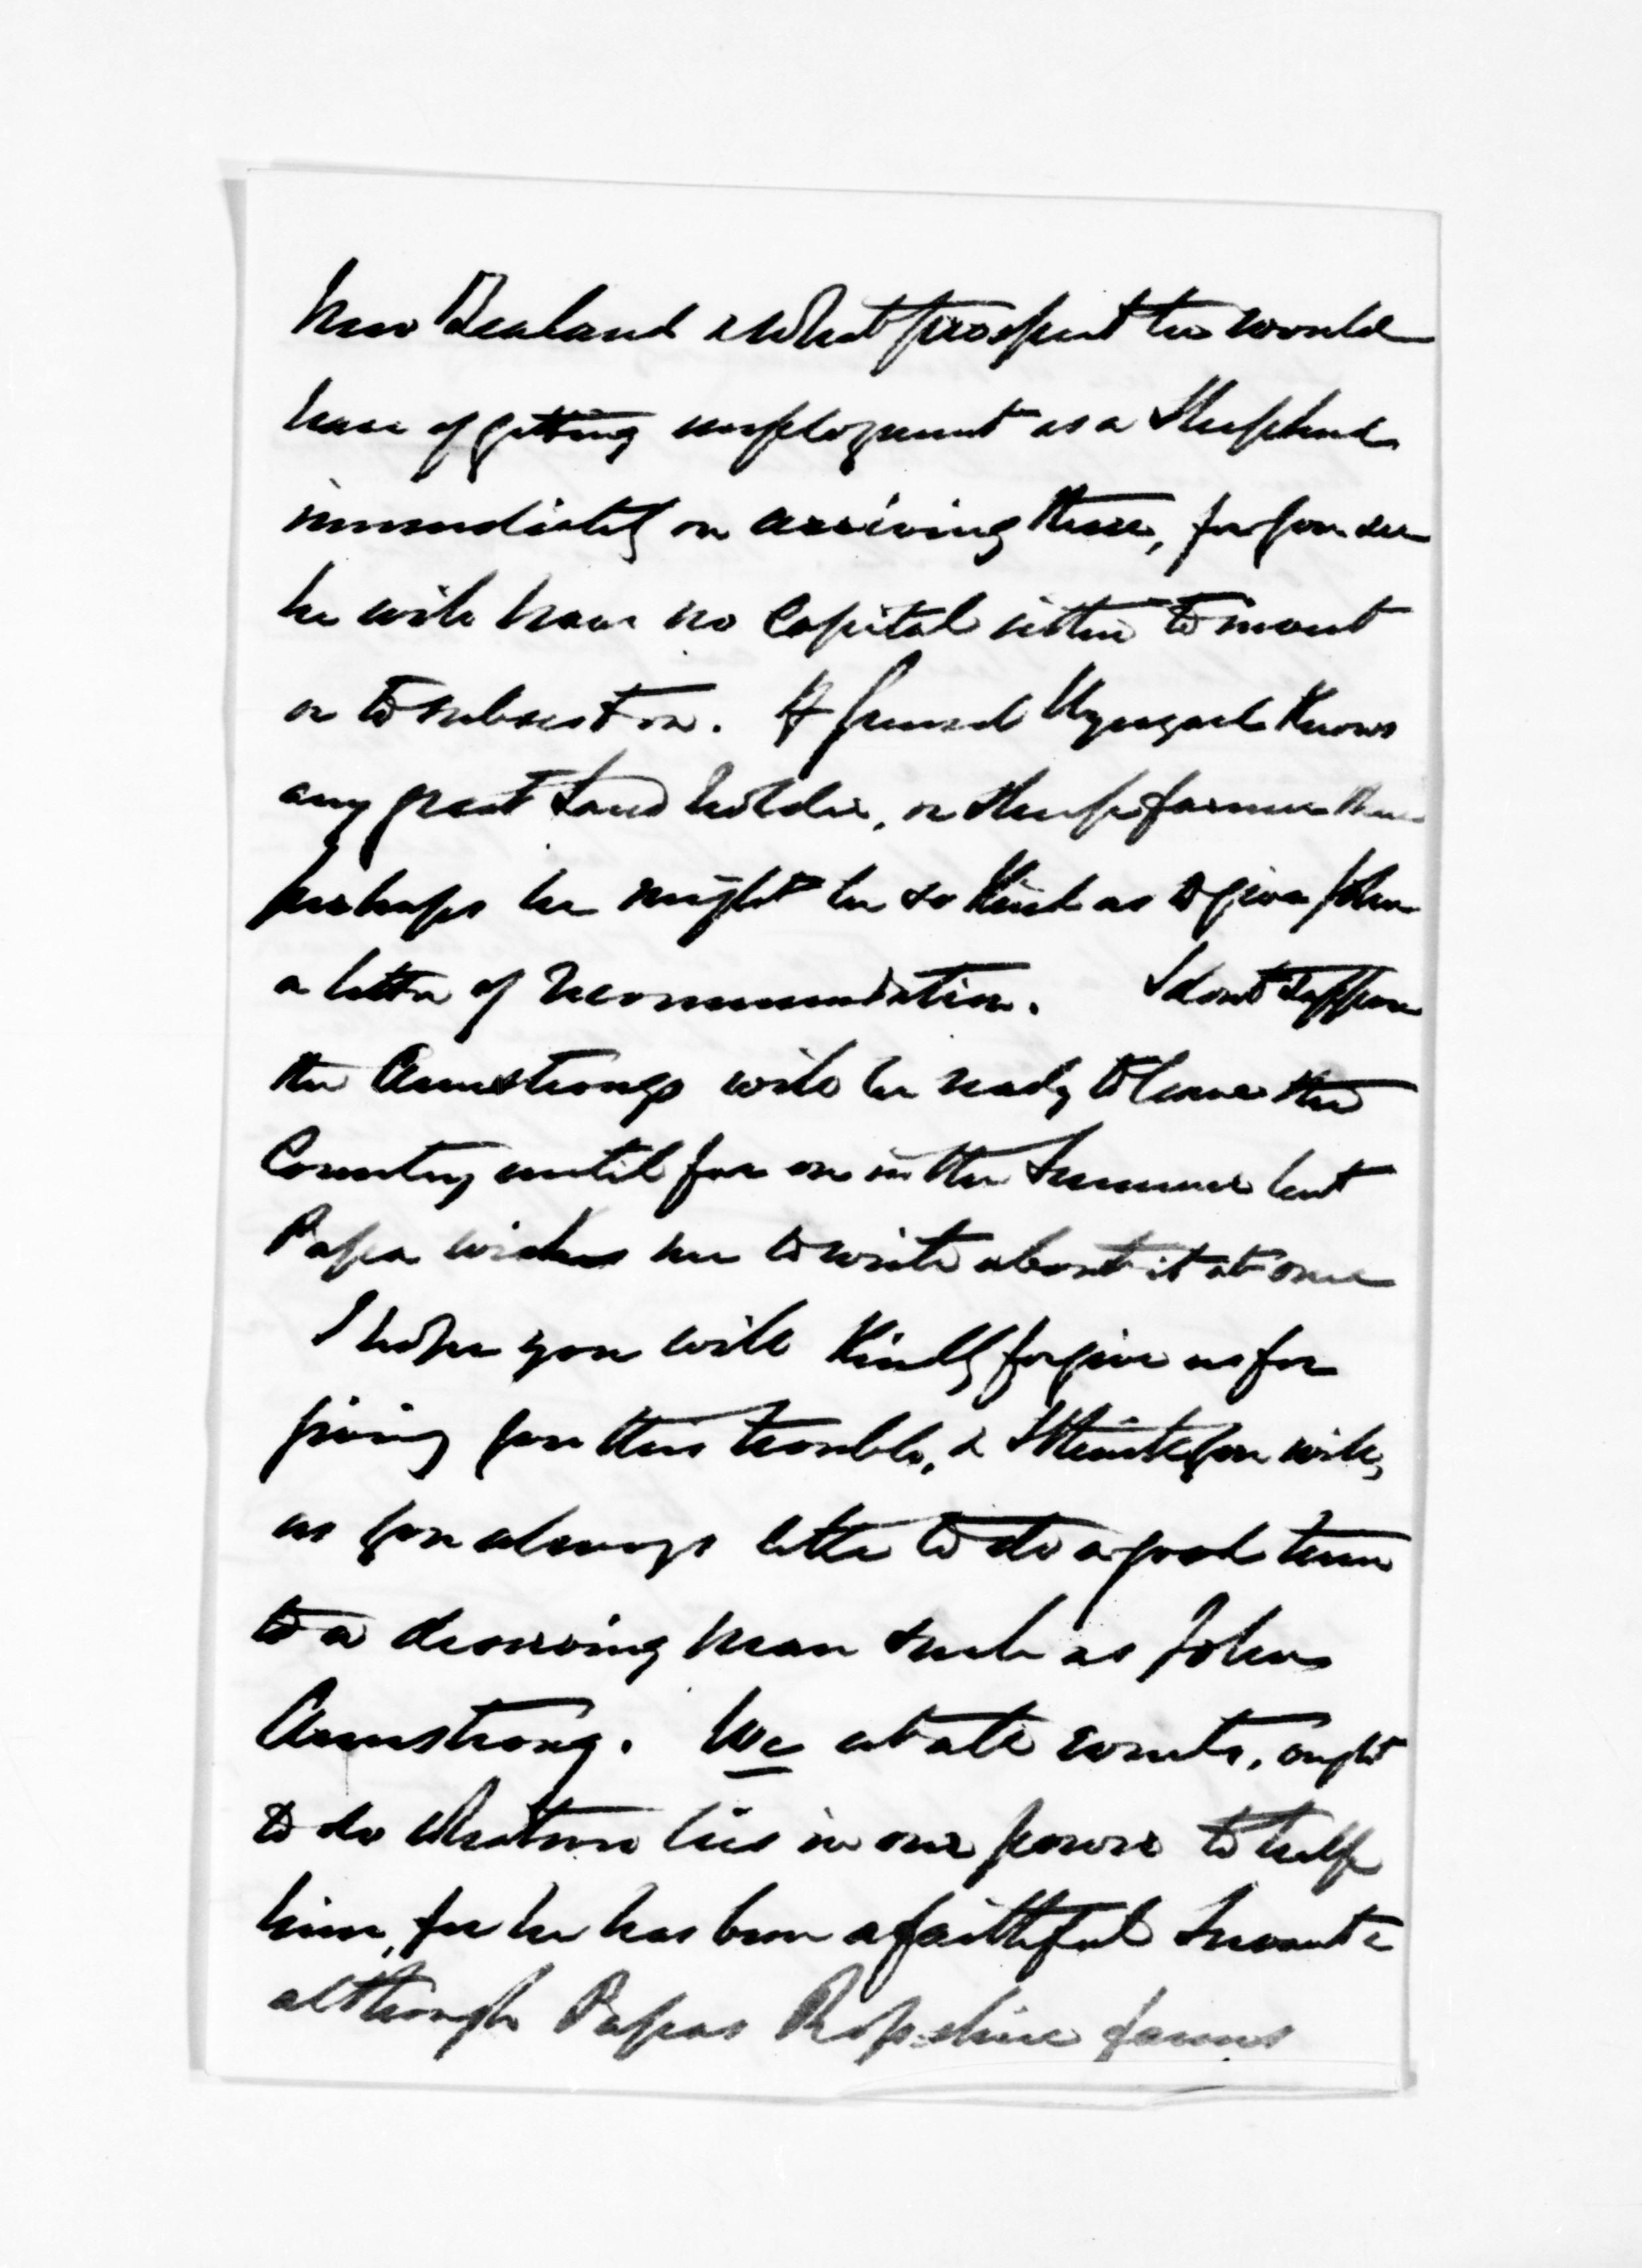 New Zealand & what prospect he would
have of getting employment as a Shepherd
immediately on arriving there, for you see
he will have no Capital either to invest
or to subsist on. If friend Wyngard Knows
any great Land holder, or sheep farmer there
perhaps he might be so Kind as to give John
a letter of recommendation. I dont suppose
the Armstrongs will be ready to leave this
Country until far on in the Summer but
Papa wishes me to write about it at once
I hope you will Kindly forgive us for
giving you this trouble, & I think you will,
as you always like to do a good turn
to a deserving man such as John
Armstrong. We at all events, ought
to do whatever lies in our power to help
him, for he has been a faithful Servant &
although Papas Ropshire farms